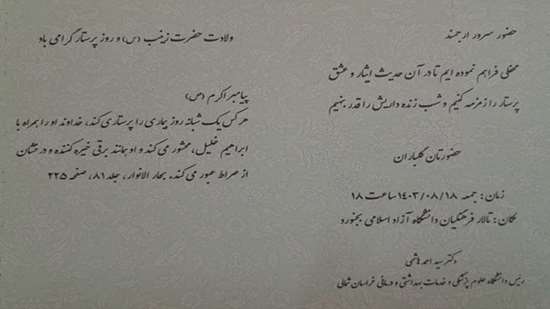 حضور سرور ارجمند
محفلی فراهم نموده ایم تا در آن حدیث ایثار و عشق
پرستار را زمزمه کنیم و شب زنده داریش را قدر بنهیم
حضورتان گلباران
زمان : جمعه ۱۴۰۳/۰۸/۱۸ ساعت ۱۸
مکان : تالار فرهنگیان دانشگاه آزاد اسلامی بجنورد
دکتر سید احمد هاشمی
رئیس دانشگاه علوم پزشکی و خدمات بهداشتی و درمانی خراسان شمالی
ولادت حضرت زینب (س) و روز پرستار گرامی باد
پیامبر اکرم (ص)
هر کس یک شبانه روز بیماری را پرستاری کند، خداوند او را همراه با
ابراهیم خلیل، محشور می کند و او بمانند برقی خیره کننده و درخشان
از صراط عبور می کند. بحار الانوار، جلد ۸۱، صفحه ۲۲۵